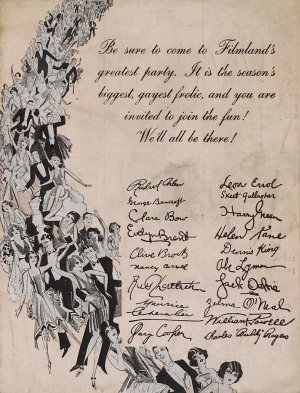 Be sure to come to Filmland's
greatest party. It is the season's
biggest, gayest frolic, and you are
invited to join the fun!
We'll all be there!
Richard Arlen
George Bancroft
Clara Bow
Evelyn Brent
Clive Brook
Nancy Carroll
Ruth Chatterton
Maurice
Chevalier
Gary Cooper
Leon Errol
Skeets Gallagher
Harry Green
Helen Kane
Dennis King
Abe Lyman
Jack Oakie
Zelma O'Neal
William Powell
Charles "Buddy" Rogers